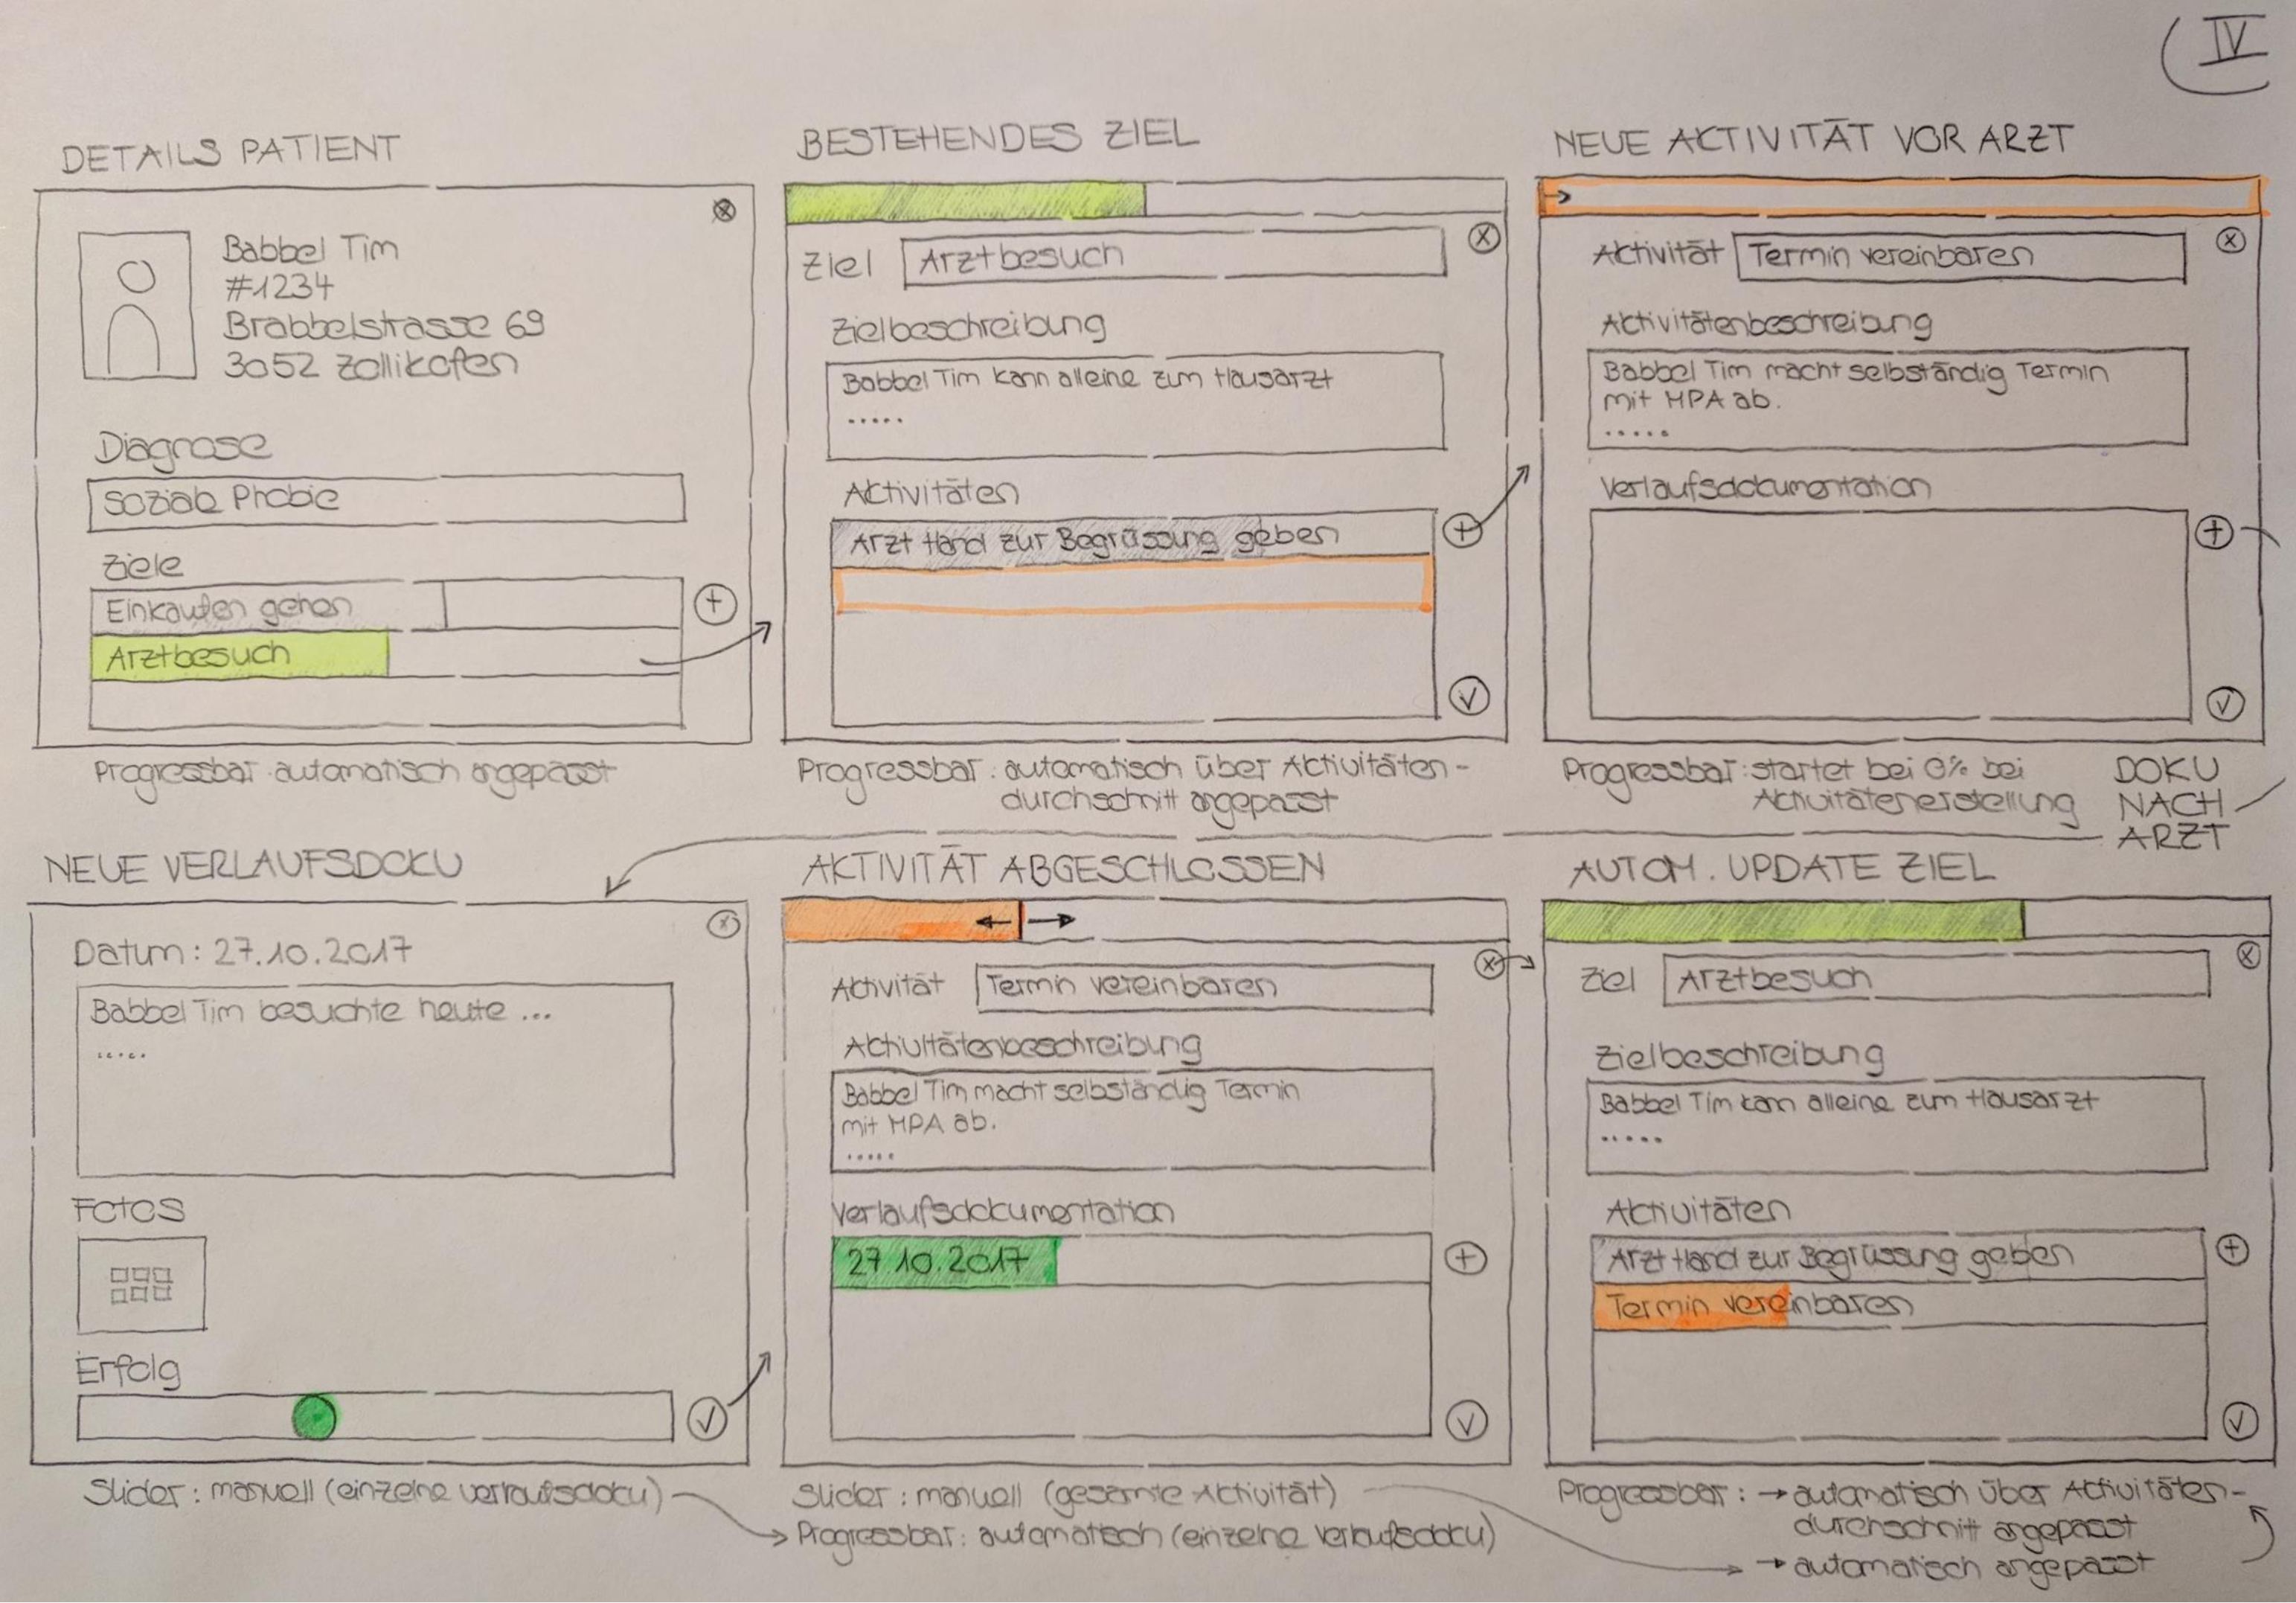 IV
DETAILS PATIENT
Babbel Tim
#1234
Brabbelstrasse 69
3052 Zollikofen
Diagnose
Soziale Phobie
Ziele
Einkaufen gehen
Arztbesuch
Progressbar: automatisch angepasst
BESTEHENDES ZIEL
Ziel Arztbesuch
Zielbeschreibung
Babbel Tim kann alleine zum Hausarzt
.....
Aktivitäten
Arzt Hand zur Begrüssung geben
Progressbar: automatisch über Aktivitäten-
durchschnitt angepasst
NEUE AKTIVITÄT VOR ARZT
Aktivität Termin vereinbaren
Aktivitätenbeschreibung
Babbel Tim macht selbständig Termin
mit MPA ab.
.....
Verlaufsdokumentation
Progressbar: startet bei 0% bei
Aktivitätenerstellung
DOKU
NACH
ARZT
NEUE VERLAUFSDOKU
Datum: 27.10.2017
Babbel Tim besuchte heute ...
.....
Fotos
Erfolg
Slider: manuell (einzelne Verlaufsdoku)
AKTIVITÄT ABGESCHLOSSEN
Aktivität Termin vereinbaren
Aktivitätenbeschreibung
Babbel Tim macht selbständig Termin
mit MPA ab.
.....
Verlaufsdokumentation
27.10.2017
Slider: manuell (gesamte Aktivität)
Progressbar: automatisch (einzelne Verlaufsdoku)
AUTOM. UPDATE ZIEL
Ziel Arztbesuch
Zielbeschreibung
Babbel Tim kann alleine zum Hausarzt
.....
Aktivitäten
Arzt Hand zur Begrüssung geben
Termin vereinbaren
Progressbar: → automatisch über Aktivitäten-
durchschnitt angepasst
→ automatisch angepasst